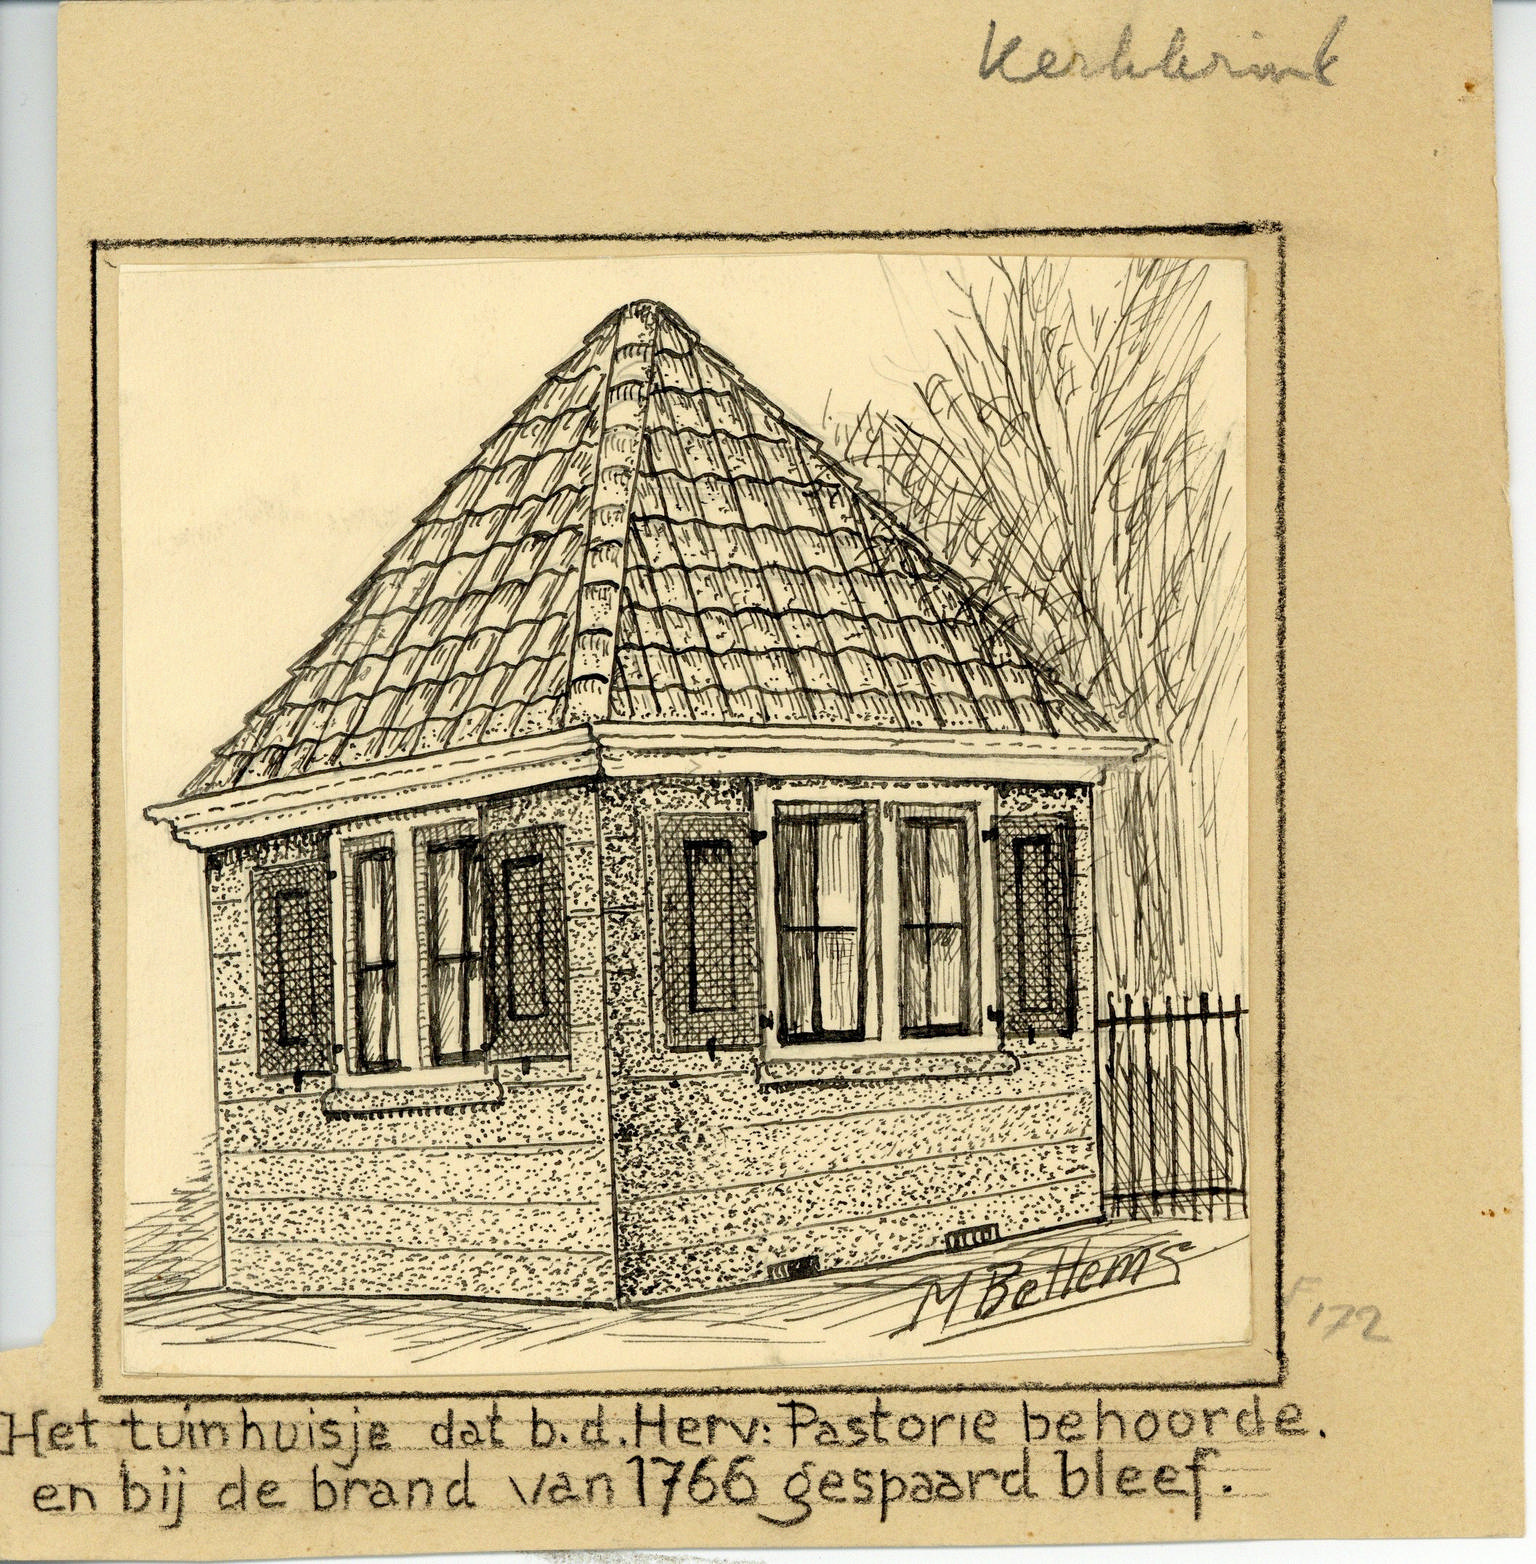 Kerkbrink
M Bettems
F 172
Het tuinhuisje dat b.d. Herv: Pastorie behoorde.
en bij de brand van 1766 gespaard bleef.